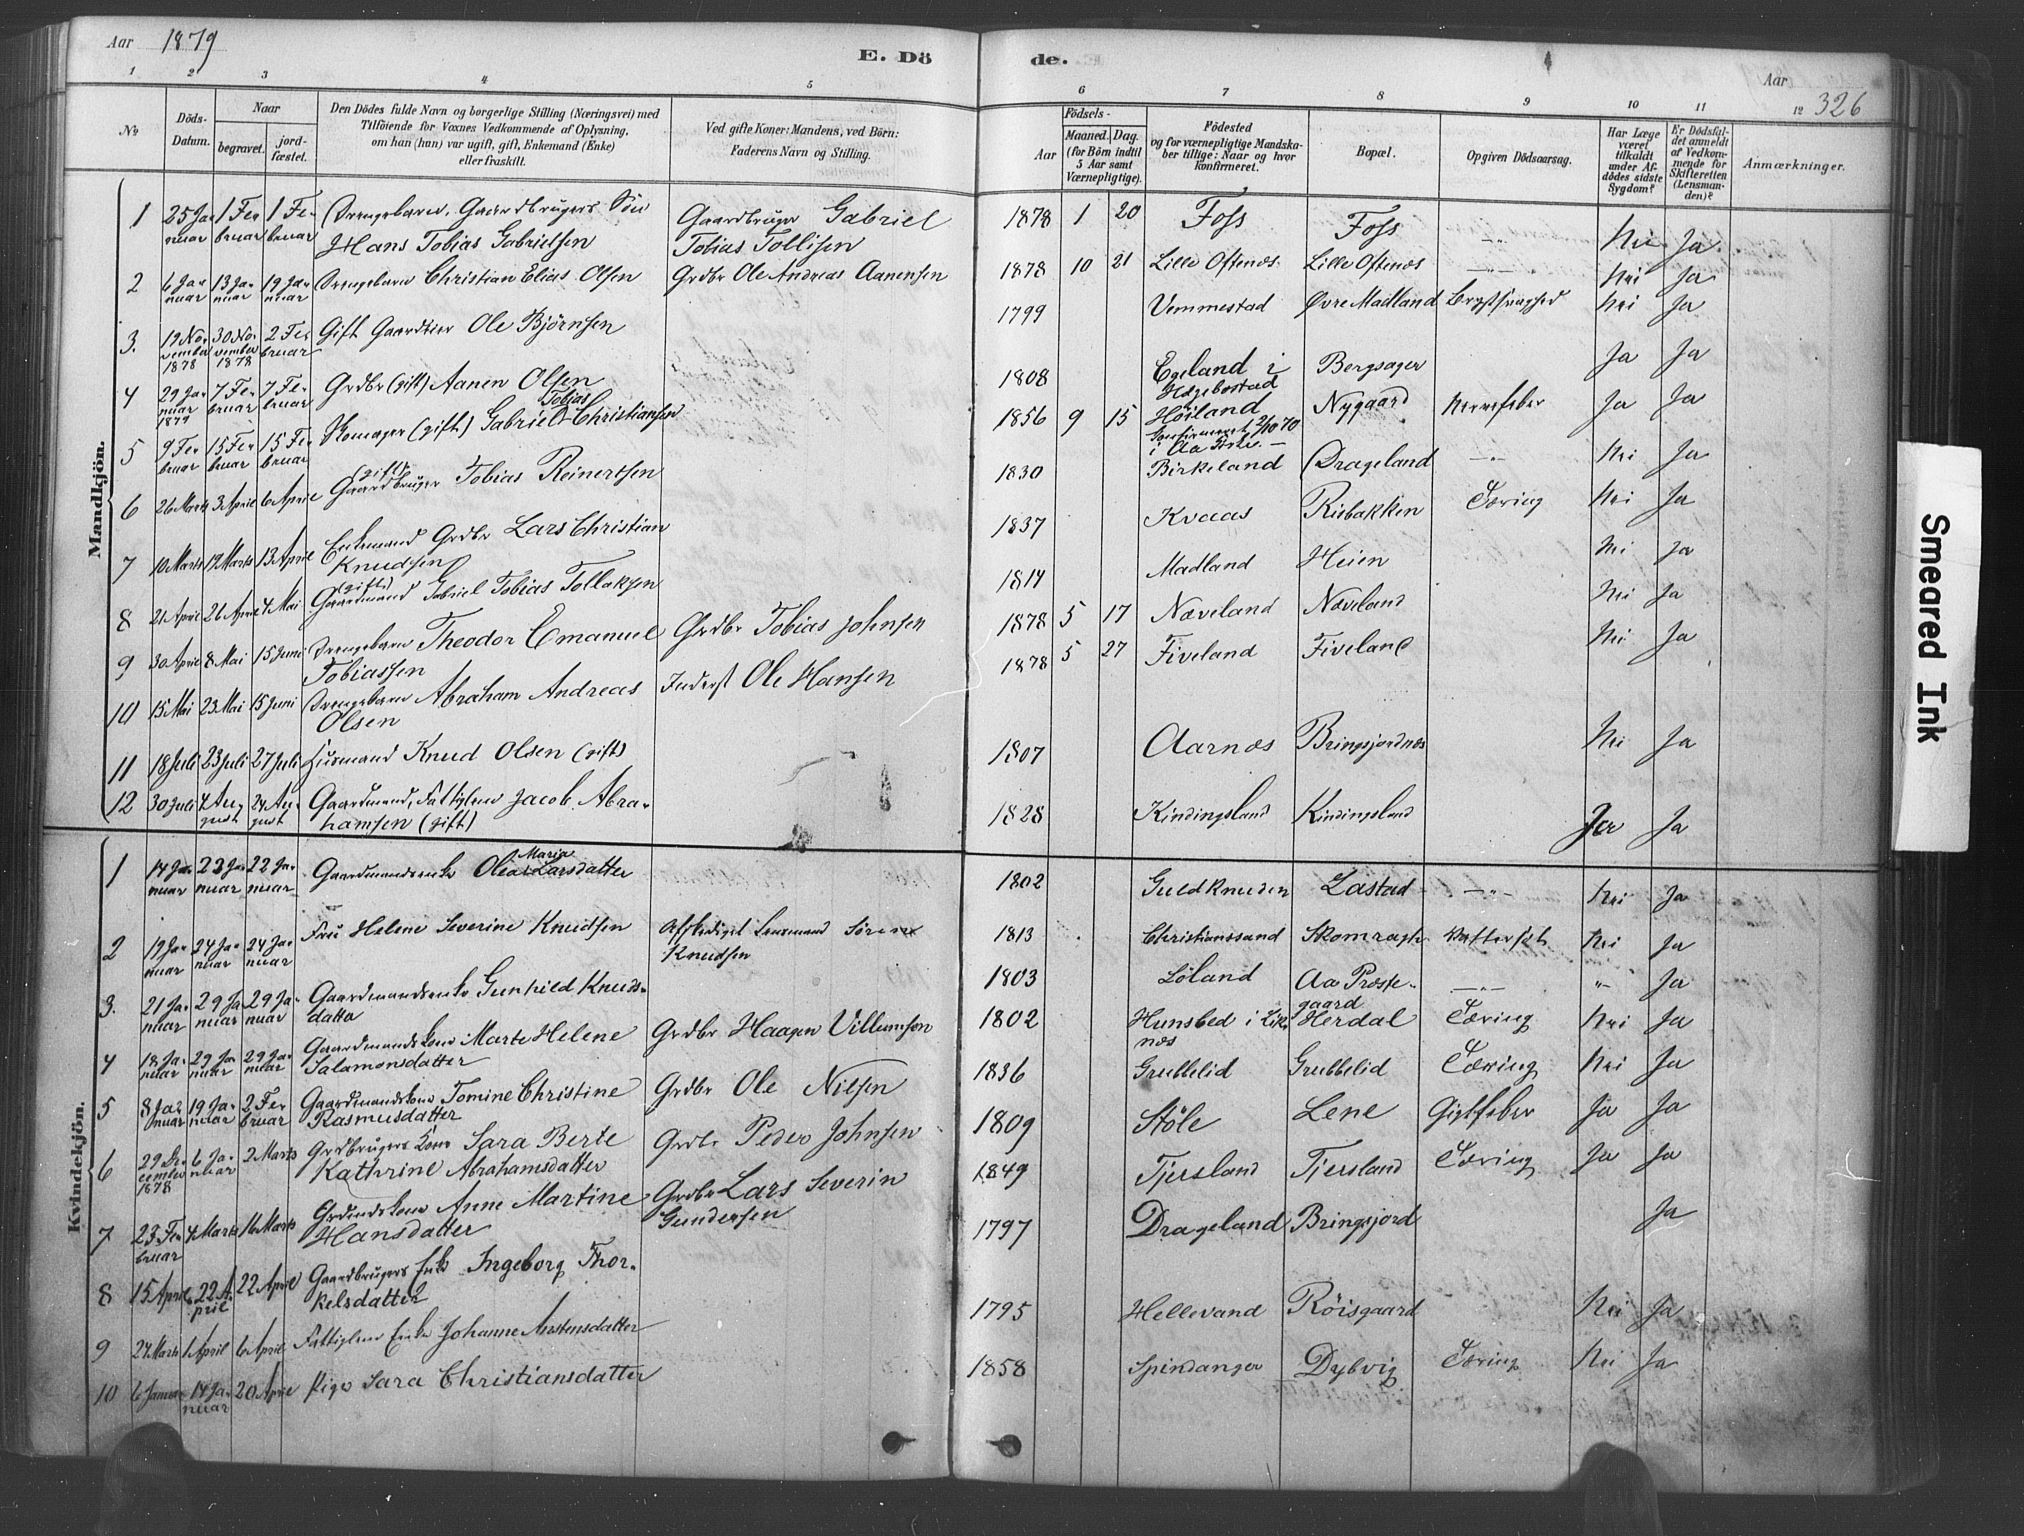 Aar 1879
E. Dö
de.
Aar
326
1 2 3 4 5
6 7 8 9 10 11 12
No
Döds-Datum.
Naar
begravet.
jordfæstet.
Den Dödes fulde Navn og borgerlige Stilling (Næringsvei) med
Tilföiende for Voxnes Vedkommende af Oplysning,
om han (hun) var ugift, gift, Enkemand (Enke)
eller fraskilt.
Ved gifte Koner: Mandens, ved Börn:
Faderens Navn og Stilling.
Födsels-
Aar
Maaned. Dag.
(for Börn indtil
5 Aar samt
Værnepligtige).
Födested
og for værnepligtige Mandska-
ber tillige: Naar og hvor
konfirmeret.
Bopæl.
Opgiven Dödsaarsag.
Har Læge
været
tilkaldt
under Af-
dödes sidste
Sygdom?
Er Dödsfal-
det anmeldt
af Vedkom-
mende for
Skifteretten
(Lensman-
den)?
Anmærkninger.
Mandkjön.
1 25 Januar 1 Februar 1 Februar Drengebarn, Gaardbrugers Søn Gaardbruger Gabriel 1878 1 20 Foss Foss -"- Nei Ja
Hans Tobias Gabrielsen Tobias Tollisen
2 6 Januar 13 Januar 19 Januar Drengebarn Christian Elias Olsen Grdbr Ole Andreas Aanensen 1878 10 21 Lille Oftenæs Lille Oftenæs -"- Nei Ja
3. 19 November 1878 30 November 1878 2 Februar Gift Gaardeier Ole Bjørnsen 1799 Vemmestad Øvre Madland Brystsvaghed Nei Ja
4 29 Januar 1879 7 Februar 7 Februar Grdbr (gift) Aanen Olsen 1808 Egeland i Hægebostad Bergsager Ja Ja
5 9 Februar 15 Februar 15 Februar Skomager (gift) Gabriel Tobias Christiansen 1856 9 15 Høiland Confirmeret 2/10 70 i Aa Kirke. Nygaard Nervefeber Ja Ja
6 26 Marts 3 April 6 April Gaardbruger (gift) Tobias Reinertsen 1830 Birkeland Drageland -"- Nei Ja
7 10 Marts 19 Marts 13 April Enkemand Grdbr Lars Christian 1837 Kvaas Risbakken Tæring Nei Ja
Knudsen
8 21 April 26 April 4 Mai Gaardmand (gift) Gabriel Tobias Tollaksen 1814 Madland Heien Nei Ja
9 30 April 8 Mai 15 Juni Drengebarn Theodor Emanuel Grdbr Tobias Johnsen 1878 5 17 Næveland Næveland Nei Ja
Tobiassen
10 15 Mai 23 Mai 15 Juni Drengebarn Abraham Andreas Inderst Ole Hansen 1878 5 27 Fiveland Fiveland Nei Ja
Olsen
11 18 Juli 23 Juli 27 Juli Huusmand Knud Olsen (gift) 1807 Aarnæs Bringsjordnæs Nei Ja
12 30 Juli 4 August 24 August Gaardmand, Fattiglem Jacob Abra- 1828 Kindingsland Kindingsland Ja Ja
hamsen (gift)
Kvindekjön.
1 14 Januar 23 Januar 22 Januar Gaardmandsenke Olea Maria Larsdatter 1802 Guldknuden Lastad -"- Nei Ja
2 19 Januar 24 Januar 24 Januar Fru Helene Severine Knudsen Afskediget Lensmand Søren 1813 Christianssand Skomragh Vattersot Nei Ja
Knudsen
3. 21 Januar 29 Januar 29 Januar Gaardmandsenke Gunhild Knuds- 1803 Løland Aa Præste- -"- " Ja
datter gaard
4 18 Januar 29 Januar 29 Januar Gaardmandskone Marte Helene Grdbr Haagen Villumsen 1802 Hunsbed i Liknæs Herdal Tæring Nei Ja
Salamonsdatter
5 8 Januar 19 Januar 2 Februar Gaardmandskone Tomine Christine Grdbr Ole Nilsen 1836 Grubbelid Grubbelid Tæring Nei Ja
Rasmusdatter
6 29 December 1878 6 Januar 2 Marts Grdbrugers Kone Sara Berte Grdbr Peder Johnsen 1809 Støle Lene Gigtfeber Ja Ja
Kathrine Abrahamsdatter
7 23 Februar 4 Marts 16 Marts Grdmdskone Anne Martine Grdbr Lars Severin 1849 Tjersland Tjersland Tæring Ja Ja
Hansdatter Gundersen
8 15 April 22 April 22 April Gaardbrugers Enke Ingeborg Thor- 1797 Drageland Bringsjord Ja
kelsdatter
9 27 Marts 1 April 6 April Fattiglem Enke Johanne Austensdatter 1795 Hellevand Røisgaard Nei Ja
10 6 Januar 14 Januar 20 April Pige Sara Christiansdatter 1858 Spindanger Dybvig Tæring Nei Ja
Smeared Ink